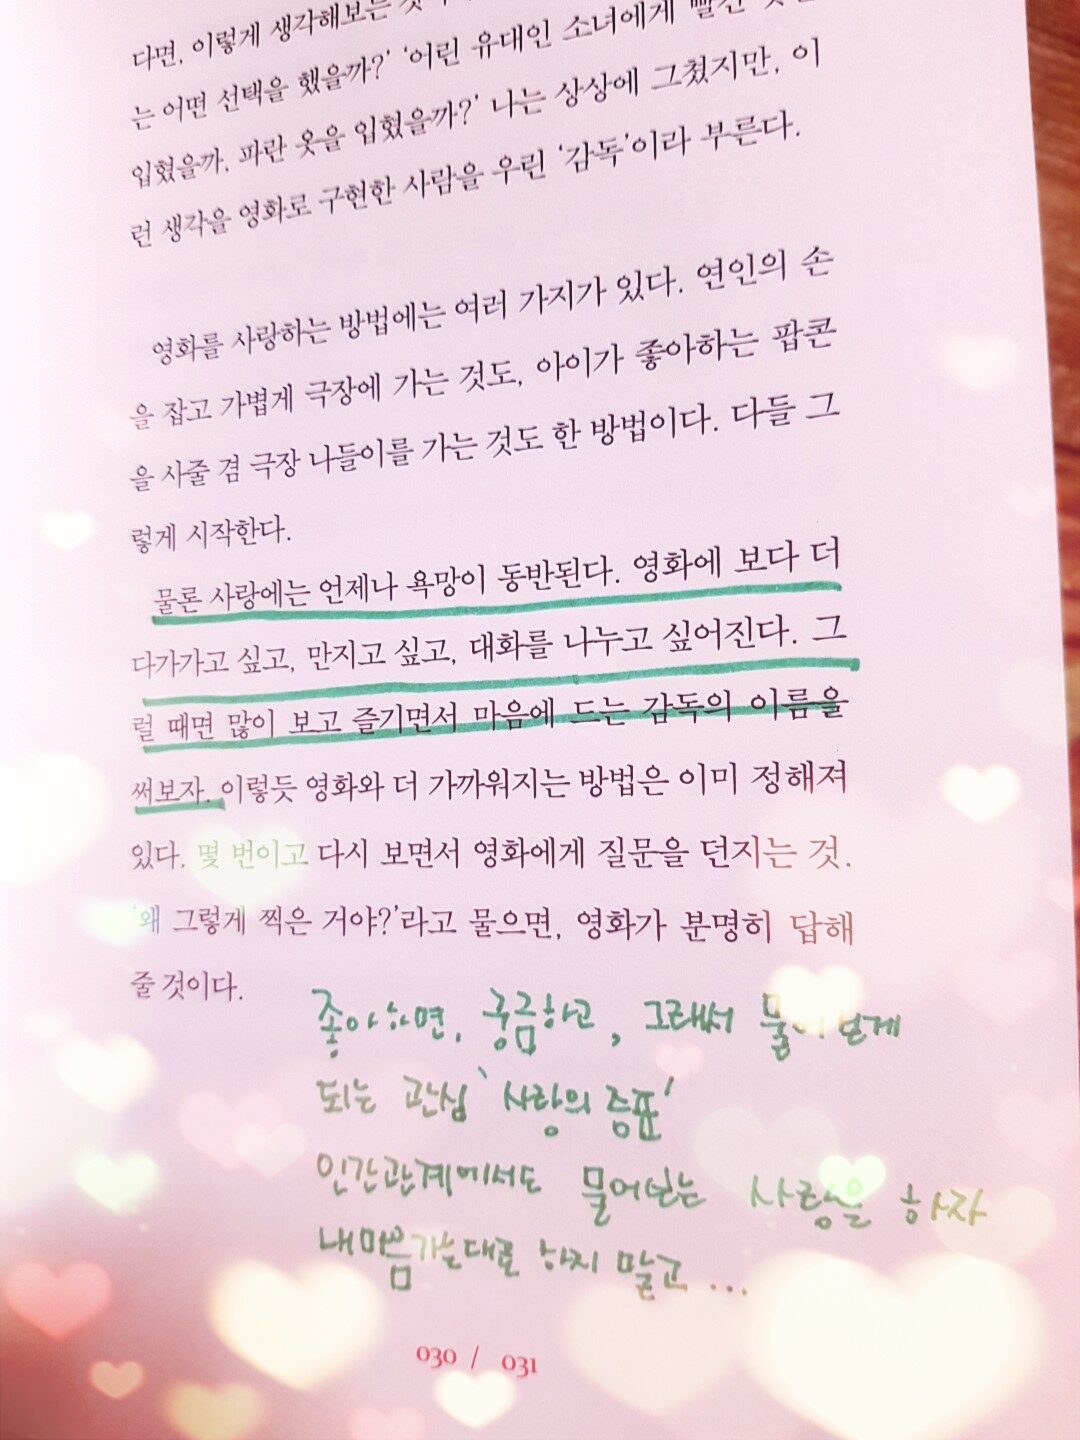 다면, 이렇게 생각해보는 것
는 어떤 선택을 했을까?’ ‘어린 유대인 소녀에게 빨간
입혔을까, 파란 옷을 입혔을까?’ 나는 상상에 그쳤지만, 이
런 생각을 영화로 구현한 사람을 우린 ‘감독’이라 부른다.
영화를 사랑하는 방법에는 여러 가지가 있다. 연인의 손
을 잡고 가볍게 극장에 가는 것도, 아이가 좋아하는 팝콘
을 사줄 겸 극장 나들이를 가는 것도 한 방법이다. 다들 그
렇게 시작한다.
물론 사랑에는 언제나 욕망이 동반된다. 영화에 보다 더
다가가고 싶고, 만지고 싶고, 대화를 나누고 싶어진다. 그
럴 때면 많이 보고 즐기면서 마음에 드는 감독의 이름을
써보자. 이렇듯 영화와 더 가까워지는 방법은 이미 정해져
있다. 몇 번이고 다시 보면서 영화에게 질문을 던지는 것.
‘왜 그렇게 찍은 거야?’라고 물으면, 영화가 분명히 답해
줄 것이다.
좋아하면, 궁금하고, 그래서 물어보게
되는 관심 ‘사랑의 증표’
인간관계에서도 물어보는 사랑을 하자
내마음가는대로 하지 말고 ...
030 / 031